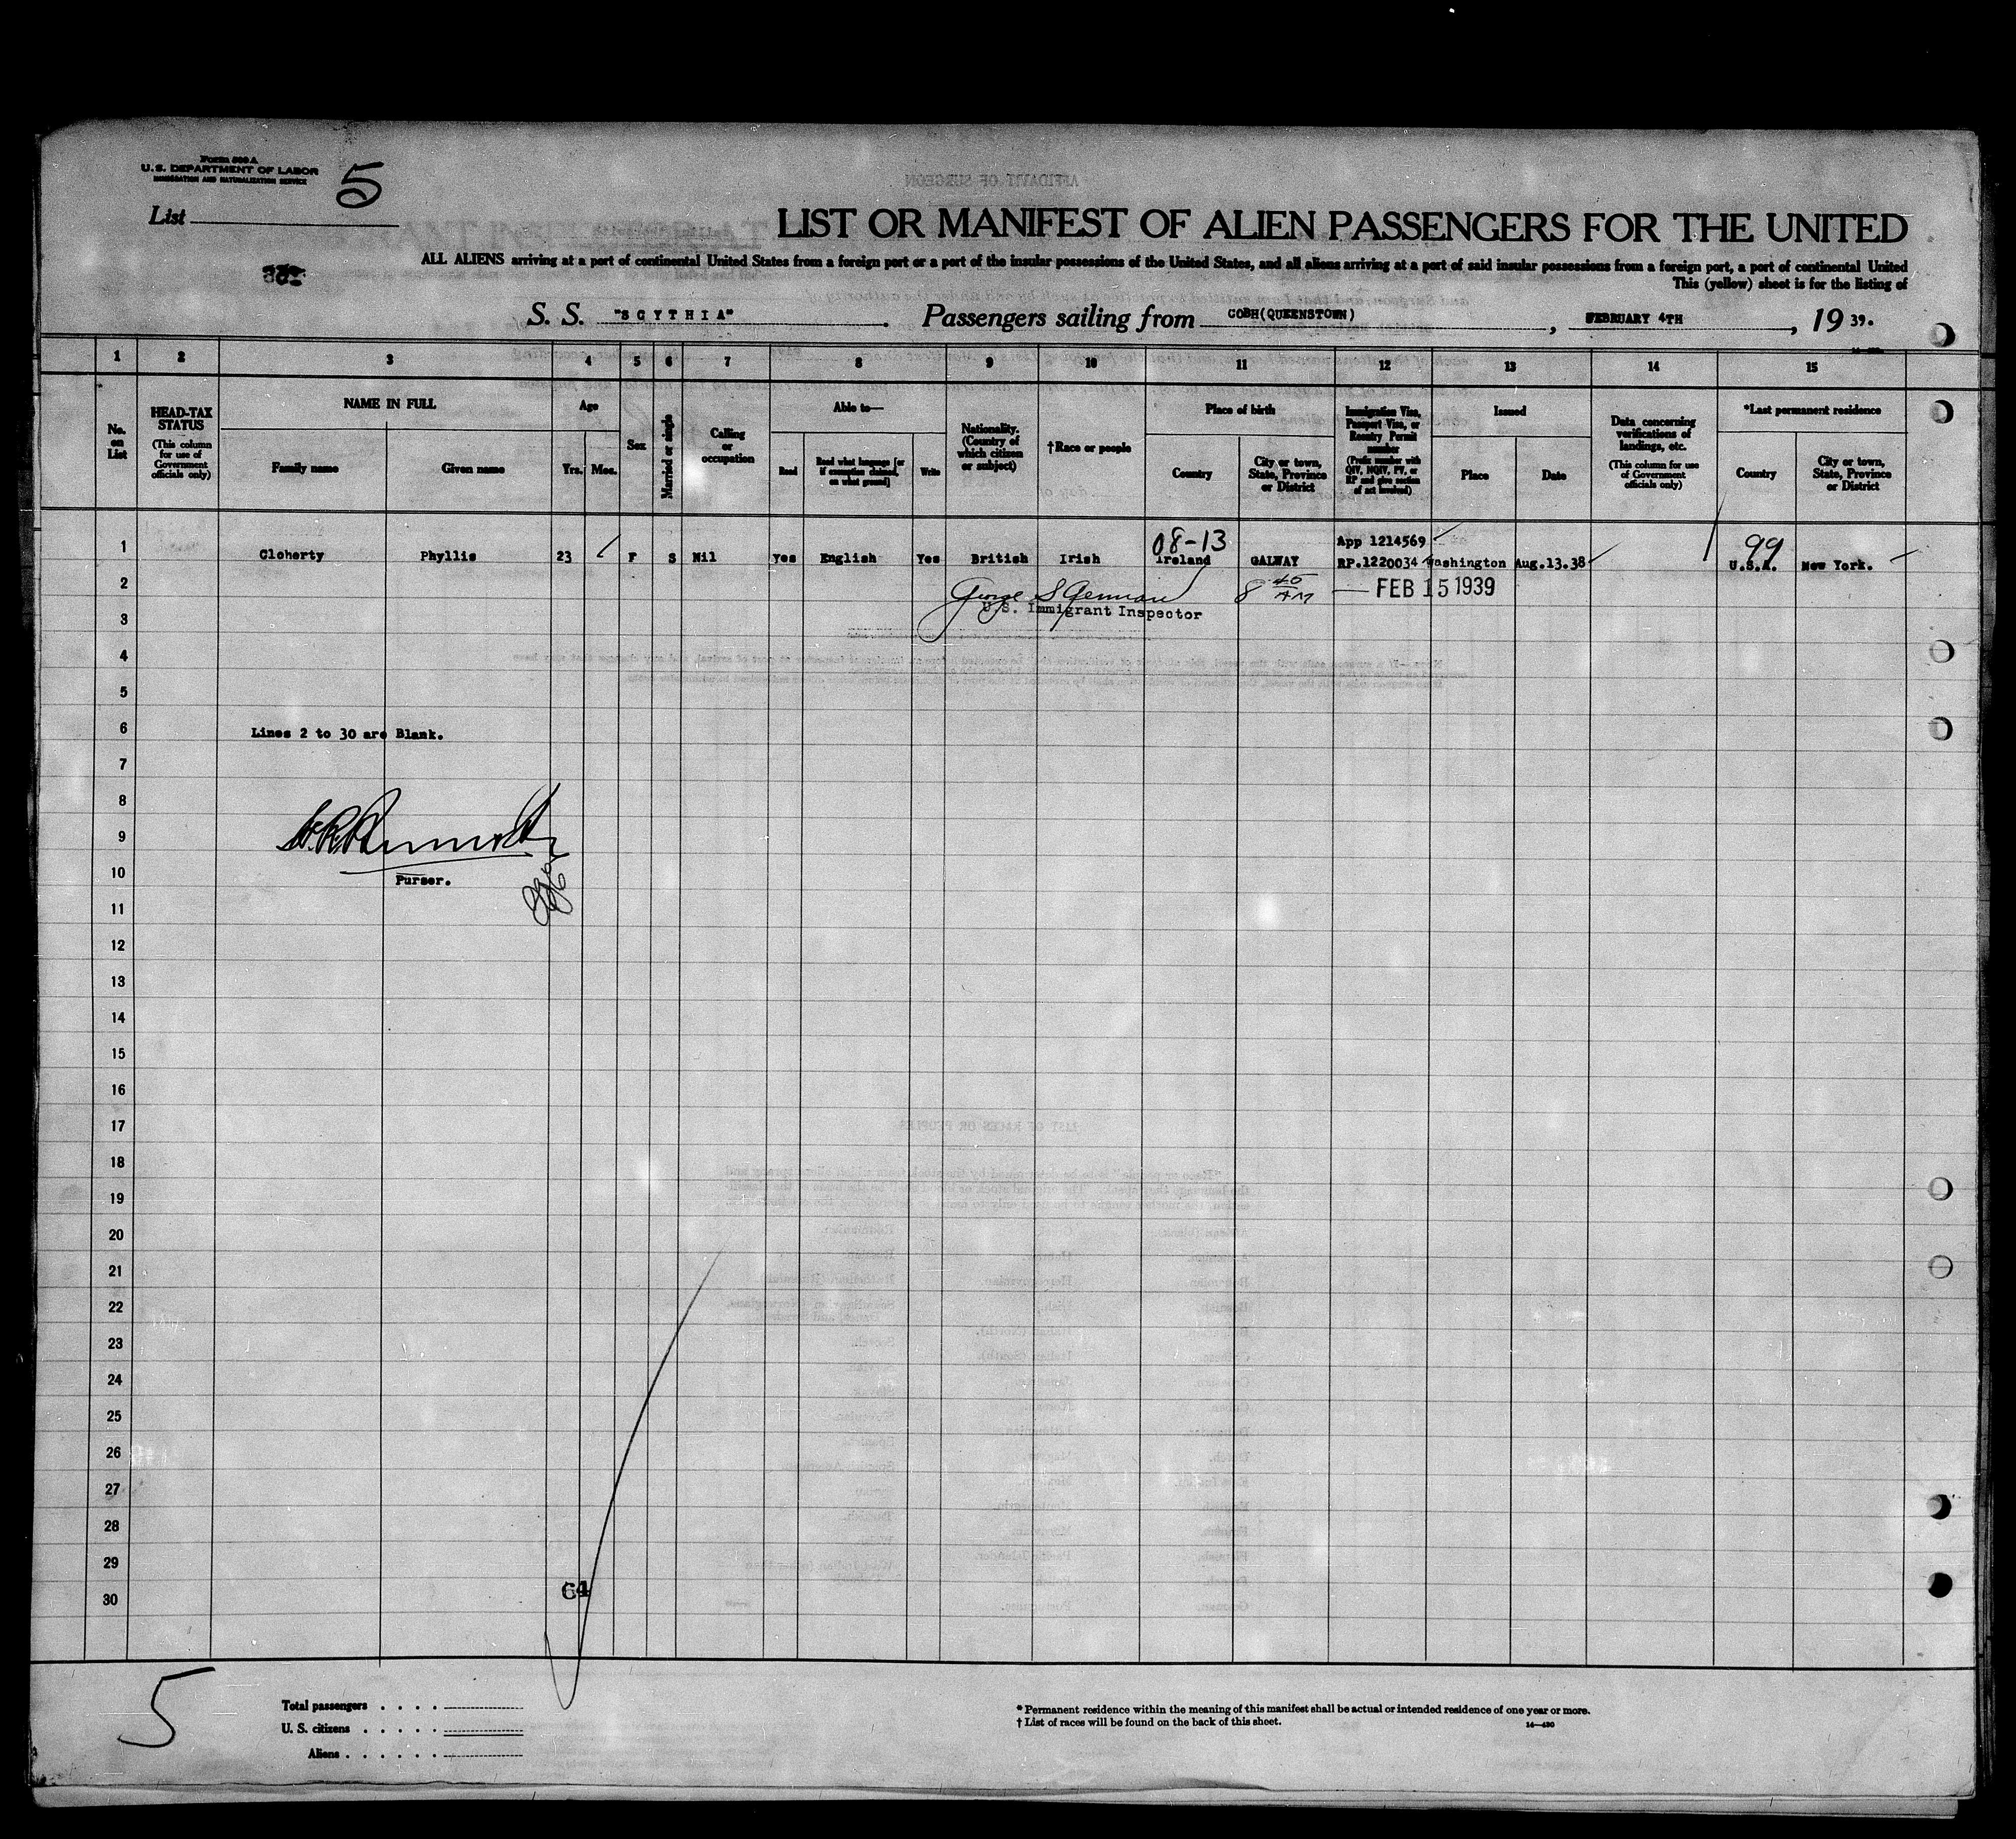 Form 500 A
U. S. DEPARTMENT OF LABOR
IMMIGRATION AND NATURALIZATION SERVICE
5
List
AFFIDAVIT OF SURGEON
LIST OR MANIFEST OF ALIEN PASSENGERS FOR THE UNITED
ALL ALIENS arriving at a port of continental United States from a foreign port or a port of the insular possessions of the United States, and all aliens arriving at a port of said insular possessions from a foreign port, a port of continental United
This (yellow) sheet is for the listing of
S. S. "SCYTHIA" . Passengers sailing from COBH(QUEENSTOWN) , FEBRUARY 4TH , 19 39.
1 2 3 4 5 6 7 8 9 10 11 12 13 14 15
No. on List
HEAD-TAX STATUS (This column for use of Government officials only)
NAME IN FULL
Family name Given name
Age
Yrs. Mos.
Sex
Married or single
Calling or occupation
Able to—
Read Read what language [or if exemption claimed, on what ground] Write
Nationality. (Country of which citizen or subject)
†Race or people
Place of birth
Country City or town, State, Province or District
Immigration Visa, Passport Visa, or Reentry Permit number (Prefix number with QIV, NQIV, PV, or RP and give section of act involved)
Issued
Place Date
Data concerning verifications of landings, etc. (This column for use of Government officials only)
*Last permanent residence
Country City or town, State, Province or District
08-13 App 1214569 99
1 Cloherty Phyllis 23 F S Nil Yes English Yes British Irish Ireland GALWAY RP.1220034 Washington Aug.13.38 U.S.A. New York.
2 8 40 AM FEB 15 1939
U.S. Immigrant Inspector
3
4
5
6 Lines 2 to 30 are Blank.
7
8
9
10 Purser.
11
12
13
14
15
16
17
LIST OF RACES OR PEOPLES
18
19
20
21
22
23
24
25
26
27
28
29
64
30
5
Total passengers . . . .
U. S. citizens . . . . .
Aliens . . . . . .
* Permanent residence within the meaning of this manifest shall be actual or intended residence of one year or more.
† List of races will be found on the back of this sheet.
14—430